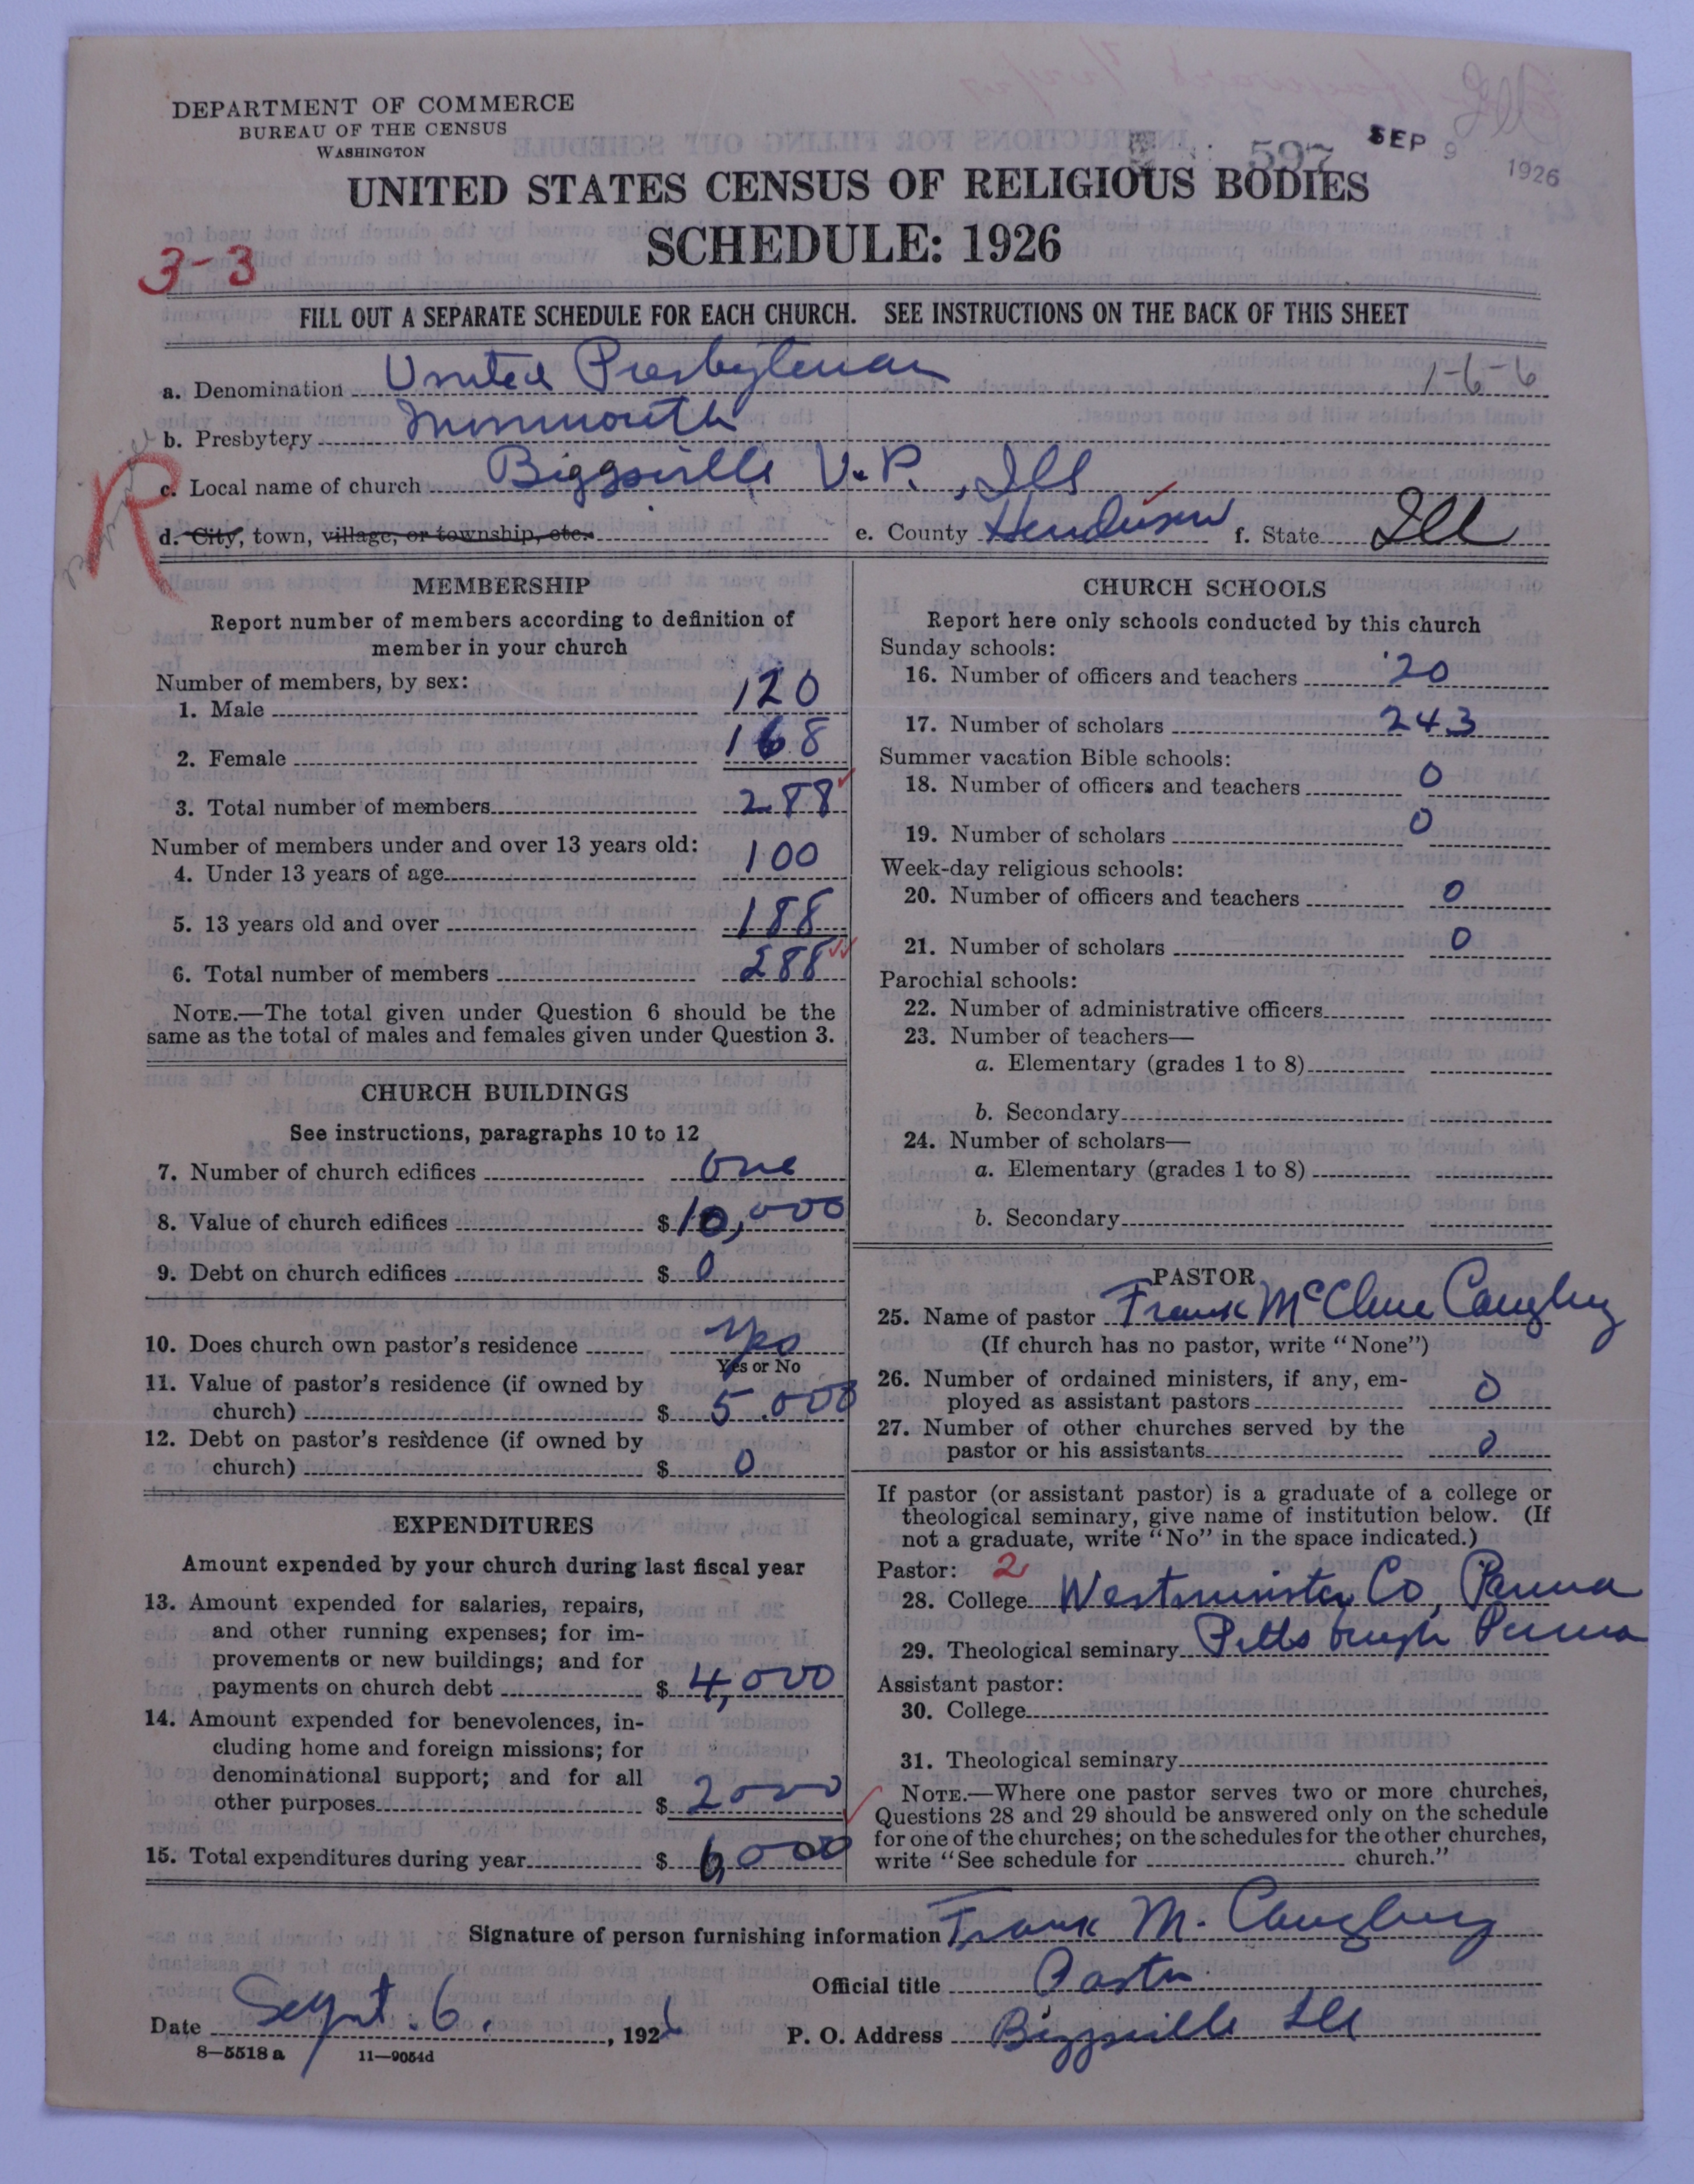 DEPARTMENT OF COMMERCE
BUREAU OF THE CENSUS
WASHINGTON
597 SEP 9 1926
Ill
UNITED STATES CENSUS OF RELIGIOUS BODIES
SCHEDULE: 1926
3-3
FILL OUT A SEPARATE SCHEDULE FOR EACH CHURCH. SEE INSTRUCTIONS ON THE BACK OF THIS SHEET
a. Denomination United Presbyterian 1-6-6
b. Presbytery Monmouth
R
c. Local name of church Biggsville U.P., Ills
d. City, town, village, or township, etc. e. County Henderson f. State Ill
MEMBERSHIP
Report number of members according to definition of
member in your church
Number of members, by sex:
1. Male 120
2. Female 168
3. Total number of members 288
Number of members under and over 13 years old:
4. Under 13 years of age 100
5. 13 years old and over 188
6. Total number of members 288
NOTE.—The total given under Question 6 should be the
same as the total of males and females given under Question 3.
CHURCH BUILDINGS
See instructions, paragraphs 10 to 12
7. Number of church edifices One
8. Value of church edifices $ 10,000
9. Debt on church edifices $ 0
10. Does church own pastor's residence Yes
Yes or No
11. Value of pastor's residence (if owned by
church) $ 5.000
12. Debt on pastor's residence (if owned by
church) $ 0
EXPENDITURES
Amount expended by your church during last fiscal year
13. Amount expended for salaries, repairs,
and other running expenses; for im-
provements or new buildings; and for
payments on church debt $ 4,000
14. Amount expended for benevolences, in-
cluding home and foreign missions; for
denominational support; and for all
other purposes $ 2000
15. Total expenditures during year $ 6,000
CHURCH SCHOOLS
Report here only schools conducted by this church
Sunday schools:
16. Number of officers and teachers 20
17. Number of scholars 243
Summer vacation Bible schools:
18. Number of officers and teachers 0
19. Number of scholars 0
Week-day religious schools:
20. Number of officers and teachers 0
21. Number of scholars 0
Parochial schools:
22. Number of administrative officers
23. Number of teachers—
a. Elementary (grades 1 to 8)
b. Secondary
24. Number of scholars—
a. Elementary (grades 1 to 8)
b. Secondary
PASTOR
25. Name of pastor Frank McClure Caughey
(If church has no pastor, write "None")
26. Number of ordained ministers, if any, em-
ployed as assistant pastors 0
27. Number of other churches served by the
pastor or his assistants 0
If pastor (or assistant pastor) is a graduate of a college or
theological seminary, give name of institution below. (If
not a graduate, write "No" in the space indicated.)
Pastor: 2
28. College Westminster Co, Penna
29. Theological seminary Pittsburgh Penna
Assistant pastor:
30. College
31. Theological seminary
NOTE.—Where one pastor serves two or more churches,
Questions 28 and 29 should be answered only on the schedule
for one of the churches; on the schedules for the other churches,
write "See schedule for church."
Signature of person furnishing information Frank M. Caughey
Official title Pastor
Date Sept. 6., 1926 P. O. Address Biggsville Ill
8—5518 a 11—9054d